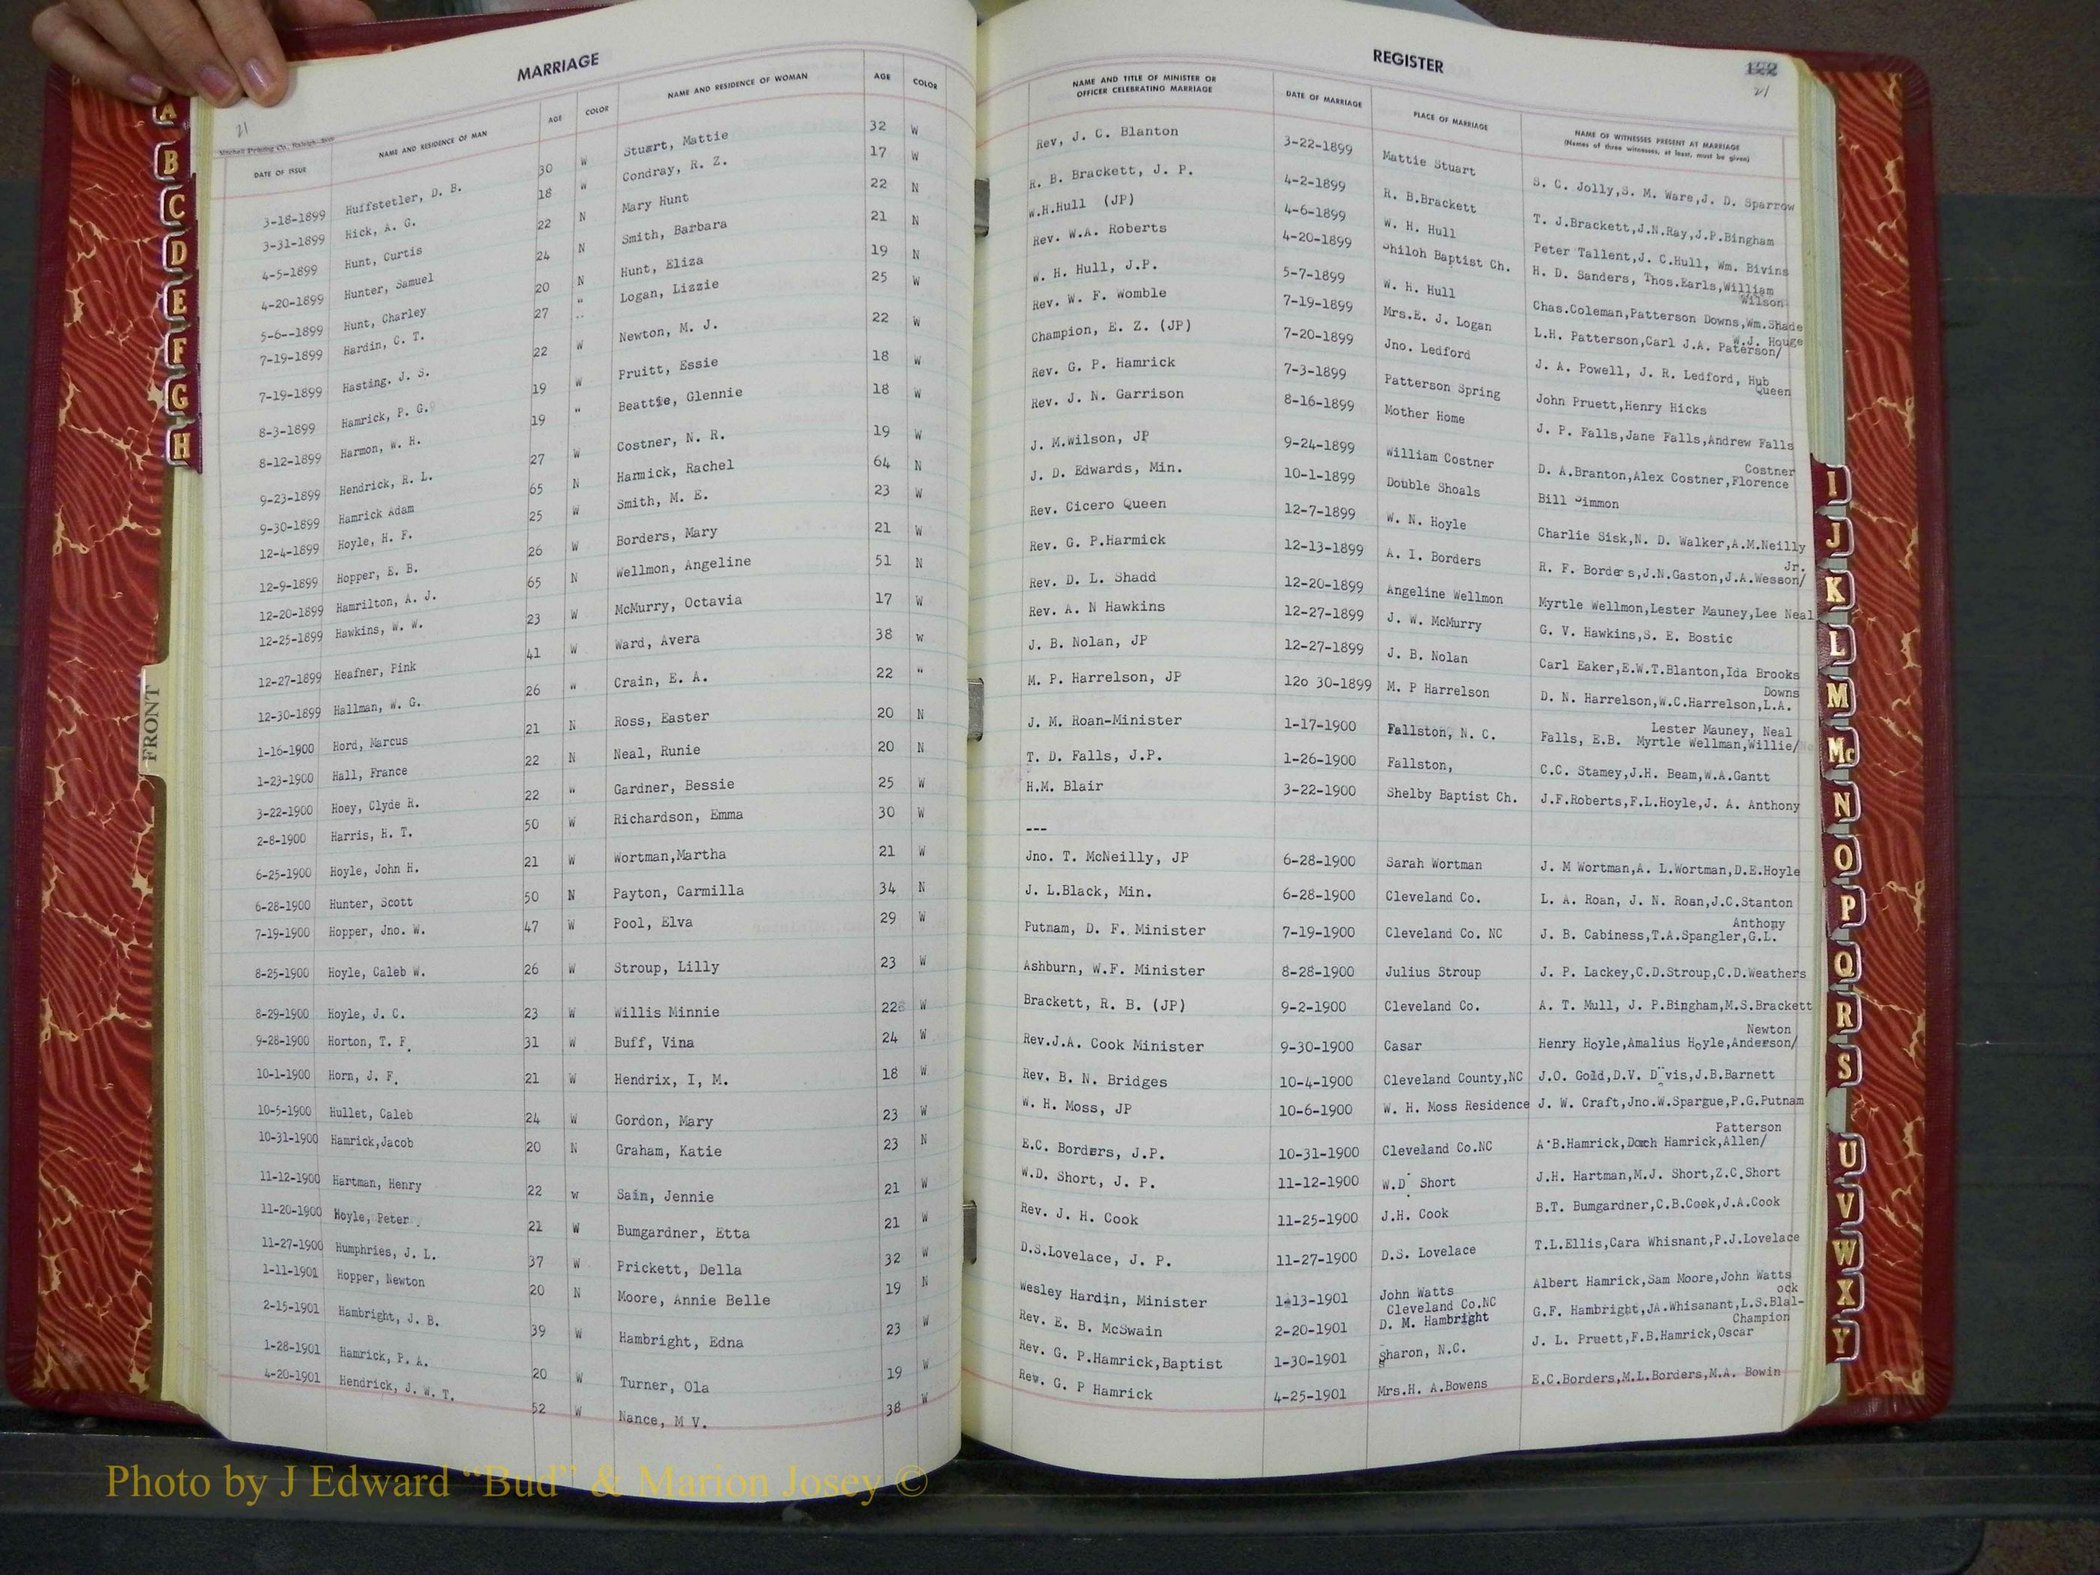 MARRIAGE
21
Mitchell Printing Co., Raleigh
DATE OF ISSUE NAME AND RESIDENCE OF MAN AGE COLOR NAME AND RESIDENCE OF WOMAN AGE COLOR
3-18-1899 Huffstetler, D. B. 30 W Stuart, Mattie 32 W
3-31-1899 Hick, A. G. 18 W Condray, R. Z. 17 W
4-5-1899 Hunt, Curtis 22 N Mary Hunt 22 N
4-20-1899 Hunter, Samuel 24 N Smith, Barbara 21 N
5-6--1899 Hunt, Charley 20 N Hunt, Eliza 19 N
7-19-1899 Hardin, C. T. 27 " Logan, Lizzie 25 W
7-19-1899 Hasting. J. S. 22 W Newton, M. J. 22 W
8-3-1899 Hamrick, P. G. 19 W Pruitt, Essie 18 W
8-12-1899 Harmon, W. H. 19 " Beattie, Glennie 18 W
9-23-1899 Hendrick, R. L. 27 W Costner, N. R. 19 W
9-30-1899 Hamrick Adam 65 N Hamrick, Rachel 64 N
12-4-1899 Hoyle, H. F. 25 W Smith, M. E. 23 W
12-9-1899 Hopper, E. B. 26 W Borders, Mary 21 W
12-20-1899 Hamrilton, A. J. 65 N Wellmon, Angeline 51 N
12-25-1899 Hawkins, W. W. 23 W McMurry, Octavia 17 W
12-27-1899 Heafner, Pink 41 W Ward, Avera 38 w
12-30-1899 Hallman, W. G. 26 " Crain, E. A. 22 "
1-16-1900 Hord, Marcus 21 N Ross, Easter 20 N
1-23-1900 Hall, France 22 N Neal, Runie 20 N
3-22-1900 Hoey, Clyde R. 22 " Gardner, Bessie 25 W
2-8-1900 Harris, H. T. 50 W Richardson, Emma 30 W
6-25-1900 Hoyle, John H. 21 W Wortman,Martha 21 W
6-28-1900 Hunter, Scott 50 N Payton, Carmilla 34 N
7-19-1900 Hopper, Jno. W. 47 W Pool, Elva 29 W
8-25-1900 Hoyle, Caleb W. 26 W Stroup, Lilly 23 W
8-29-1900 Hoyle, J. C. 23 W Willis Minnie 22 W
9-28-1900 Horton, T. F. 31 W Buff, Vina 24 W
10-1-1900 Horn, J. F. 21 W Hendrix, I, M. 18 W
10-5-1900 Hullet, Caleb 24 W Gordon, Mary 23 W
10-31-1900 Hamrick,Jacob 20 N Graham, Katie 23 N
11-12-1900 Hartman, Henry 22 w Sain, Jennie 21 W
11-20-1900 Hoyle, Peter 21 W Bumgardner, Etta 21 W
11-27-1900 Humphries, J. L. 37 W Prickett, Della 32 W
1-11-1901 Hopper, Newton 20 N Moore, Annie Belle 19 N
2-15-1901 Hambright, J. B. 39 W Hambright, Edna 23 W
1-28-1901 Hamrick, P. A. 20 W Turner, Ola 19 W
4-20-1901 Hendrick, J. W. T. 52 W Nance, M V. 38 W
REGISTER
122
21
NAME AND TITLE OF MINISTER OR OFFICER CELEBRATING MARRIAGE DATE OF MARRIAGE PLACE OF MARRIAGE NAME OF WITNESSES PRESENT AT MARRIAGE
(Names of three witnesses, at least, must be given)
Rev, J. C. Blanton 3-22-1899 Mattie Stuart S. C. Jolly,S. M. Ware,J. D. Sparrow
R. B. Brackett, J. P. 4-2-1899 R. B.Brackett T. J.Brackett,J.N.Ray,J.P.Bingham
W.H.Hull (JP) 4-6-1899 W. H. Hull Peter Tallent,J. C.Hull, Wm. Bivins
Rev. W.A. Roberts 4-20-1899 Shiloh Baptist Ch. H. D. Sanders, Thos.Earls,William
Wilson
W. H. Hull, J.P. 5-7-1899 W. H. Hull Chas.Coleman,Patterson Downs,Wm.Shade
W.J. Houge
Rev. W. F. Womble 7-19-1899 Mrs.E. J. Logan L.H. Patterson,Carl J.A. Paterson/
Champion, E. Z. (JP) 7-20-1899 Jno. Ledford J. A. Powell, J. R. Ledford, Hub
Queen
Rev. G. P. Hamrick 7-3-1899 Patterson Spring John Pruett,Henry Hicks
Rev. J. N. Garrison 8-16-1899 Mother Home J. P. Falls,Jane Falls,Andrew Falls
Costner
J. M.Wilson, JP 9-24-1899 William Costner D. A.Branton,Alex Costner,Florence
J. D. Edwards, Min. 10-1-1899 Double Shoals Bill Simmon
Rev. Cicero Queen 12-7-1899 W. N. Hoyle Charlie Sisk,N. D. Walker,A.M.Neilly
Jr.
Rev. G. P.Harmick 12-13-1899 A. I. Borders R. F. Borders,J.N.Gaston,J.A.Wesson/
Rev. D. L. Shadd 12-20-1899 Angeline Wellmon Myrtle Wellmon,Lester Mauney,Lee Neal
Rev. A. N Hawkins 12-27-1899 J. W. McMurry G. V. Hawkins,S. E. Bostic
J. B. Nolan, JP 12-27-1899 J. B. Nolan Carl Eaker,E.W.T.Blanton,Ida Brooks
Downs
M. P. Harrelson, JP 12o 30-1899 M. P Harrelson D. N. Harrelson,W.C.Harrelson,L.A.
Lester Mauney, Neal
J. M. Roan-Minister 1-17-1900 Fallston, N. C. Falls, E.B. Myrtle Wellman,Willie/
T. D. Falls, J.P. 1-26-1900 Fallston, C.C. Stamey,J.H. Beam,W.A.Gantt
H.M. Blair 3-22-1900 Shelby Baptist Ch. J.F.Roberts,F.L.Hoyle,J. A. Anthony
---
Jno. T. McNeilly, JP 6-28-1900 Sarah Wortman J. M Wortman,A. L.Wortman,D.E.Hoyle
J. L.Black, Min. 6-28-1900 Cleveland Co. L. A. Roan, J. N. Roan,J.C.Stanton
Anthony
Putnam, D. F. Minister 7-19-1900 Cleveland Co. NC J. B. Cabiness,T.A.Spangler,G.L.
Ashburn, W.F. Minister 8-28-1900 Julius Stroup J. P. Lackey,C.D.Stroup,C.D.Weathers
Brackett, R. B. (JP) 9-2-1900 Cleveland Co. A. T. Mull, J. P.Bingham,M.S.Brackett
Newton
Rev.J.A. Cook Minister 9-30-1900 Casar Henry Hoyle,Amalius Hoyle,Anderson/
Rev. B. N. Bridges 10-4-1900 Cleveland County,NC J.O. Gold,D.V. Davis,J.B.Barnett
W. H. Moss, JP 10-6-1900 W. H. Moss Residence J. W. Craft,Jno.W.Spargue,P.G.Putnam
Patterson
E.C. Borders, J.P. 10-31-1900 Cleveland Co.NC A.B.Hamrick, Hamrick,Allen/
W.D. Short, J. P. 11-12-1900 W.D Short J.H. Hartman,M.J. Short,Z.C.Short
Rev. J. H. Cook 11-25-1900 J.H. Cook B.T. Bumgardner,C.B.Cook,J.A.Cook
D.S.Lovelace, J. P. 11-27-1900 D.S. Lovelace T.L.Ellis,Cara Whisnant,P.J.Lovelace
Wesley Hardin, Minister 1-13-1901 John Watts Albert Hamrick,Sam Moore,John Watts
Cleveland Co.NC ock
Rev. E. B. McSwain 2-20-1901 D. M. Hambright G.F. Hambright,JA.Whisanant,L.S.Blal-
Champion
Rev. G. P.Hamrick,Baptist 1-30-1901 Sharon, N.C. J. L. Pruett,F.B.Hamrick,Oscar
Rev. G. P Hamrick 4-25-1901 Mrs.H. A.Bowens E.C.Borders,M.L.Borders,M.A. Bowin
A
B
C
D
E
F
G
H
FRONT
I
J
K
L
M
Mc
N
O
P
Q
R
S
U
V
W
X
Y
Photo by J Edward “Bud” & Marion Josey ©